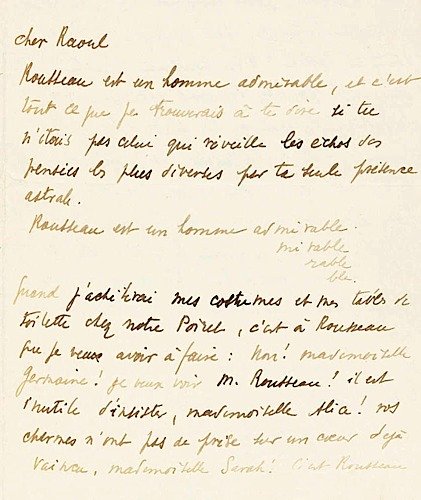 cher Raoul
Rousseau est un homme admirable, et c'est
tout ce que je trouverais à te dire si tu
n'étais pas celui qui réveille les echos des
pensées les plus diverses par ta seule présence
astrale.
Rousseau est un homme admirable.
mirable
rable
ble.
Quand j'achèterai mes costumes et mes tables de
toilette chez notre Poiret, c'est à Rousseau
que je veux avoir à faire : Non! mademoiselle
Germaine! je veux voir M. Rousseau! il est
inutile d'insister, mademoiselle Alice! vos
charmes n'ont pas de prise sur un cœur déjà
vaincu, mademoiselle Sarah! C'est Rousseau